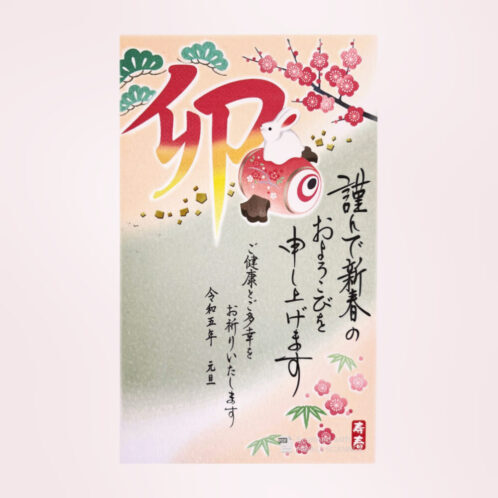 卯
謹んで新春の
およろこびを
申し上げます
ご健康とご多幸を
お祈りいたします
令和五年 元旦
寿春